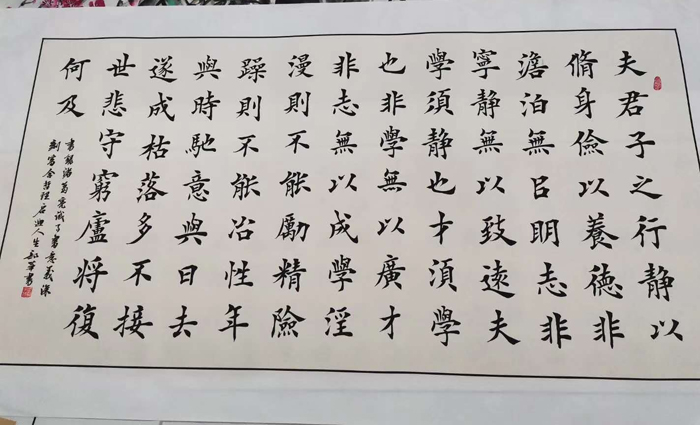 夫君子之行静以
脩身儉以養德非
澹泊無㠯明志非
寧静無以致遠夫
學須静也才須學
也非學無以廣才
非志無以成學淫
漫則不能勵精險
躁則不能冶性年
與時馳意與日去
遂成枯落多不接
世悲守窮廬將復
何及
諸葛亮誡子書意義深
刻富含哲理启迪人生 華書